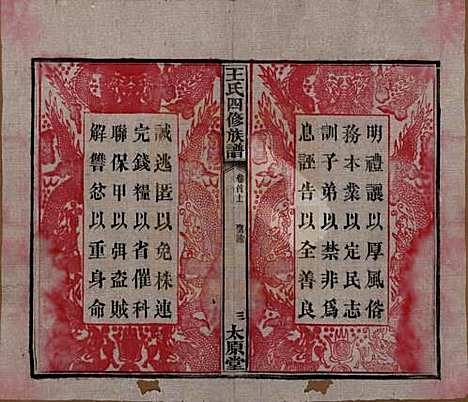 明禮讓以厚風俗
務本業以定民志
訓子弟以禁非爲
息誣告以全善良
王氏四修族譜
卷首上
聖諭
三
太原堂
誡逃匿以免株連
完錢糧以省催科
聯保甲以弭盜賊
解讐忿以重身命